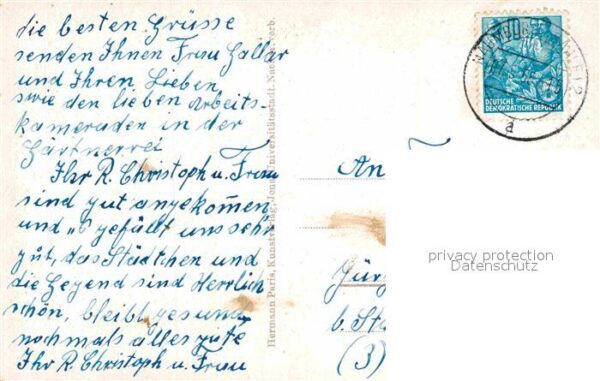 die besten Grüsse
senden Ihnen Frau Gallar
und Ihren Lieben,
sowie den lieben Arbeits-
kameraden in der
Gärtnerrei
Ihr R. Christoph u. Frau
sind gut angekomen
und "s gefällt uns sehr
gut, das Städtchen und
die Gegend sind Herrlich
schön, bleibt gesund
nochmals alles gute
Ihr R. Christoph u. Frau
Hermann Paris, Kunstverlag, Jena, Universitätsstadt. Nachdr. verb.
DEUTSCHE
DEMOKRATISCHE REPUBLIK
a
An
b. Sta
(3)
privacy protection
Datenschutz